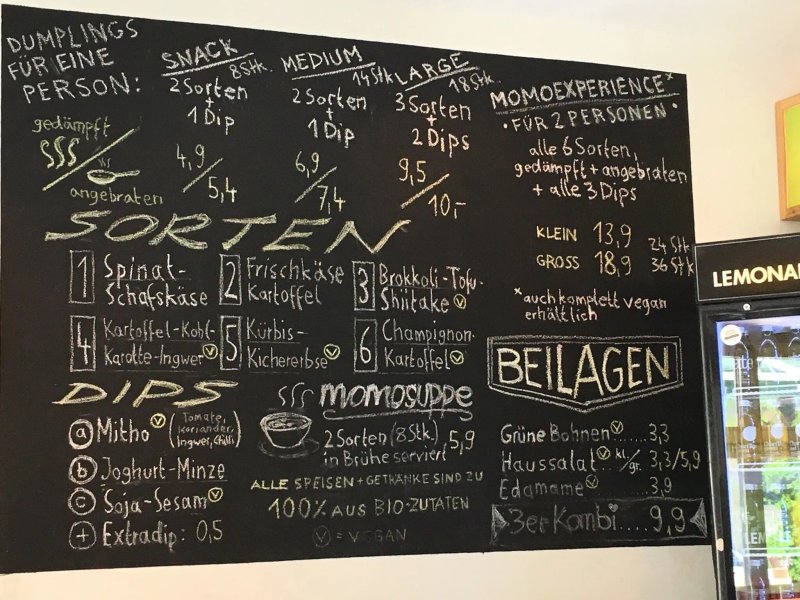 DUMPLINGS
FÜR EINE
PERSON:
gedämpft
angebraten
SNACK
8 Stk.
2 Sorten
+
1 Dip
4,9/5,4
MEDIUM
14 Stk
2 Sorten
+
1 Dip
6,9/7,4
LARGE
18 Stk.
3 Sorten
+
2 Dips
9,5/10,-
MOMOEXPERIENCE*
• FÜR 2 PERSONEN •
alle 6 Sorten,
gedämpft + angebraten
+ alle 3 Dips
KLEIN 13,9 24 Stk
GROSS 18,9 36 Stk
*auch komplett vegan
erhältlich
SORTEN
1 Spinat-
Schafskäse
2 Frischkäse
Kartoffel
3 Brokkoli-Tofu-
Shiitake Ⓥ
4 Kartoffel-Kohl-
Karotte-Ingwer Ⓥ
5 Kürbis-
Kichererbse Ⓥ
6 Champignon-
Kartoffel Ⓥ
DIPS
ⓐ Mitho Ⓥ (Tomate,
Koriander,
Ingwer, Chilli)
ⓑ Joghurt-Minze
ⓒ Soja-Sesam Ⓥ
+ Extradip: 0,5
MOMOSUPPE
2 Sorten (8 Stk.) 5,9
in Brühe serviert
ALLE SPEISEN + GETRÄNKE SIND ZU
100% AUS BIO-ZUTATEN
Ⓥ = VEGAN
BEILAGEN
Grüne Bohnen Ⓥ ...... 3,3
Haussalat Ⓥ kl./gr. 3,3/5,9
Edamame Ⓥ ...... 3,9
3er Kombi .... 9,9
LEMONA